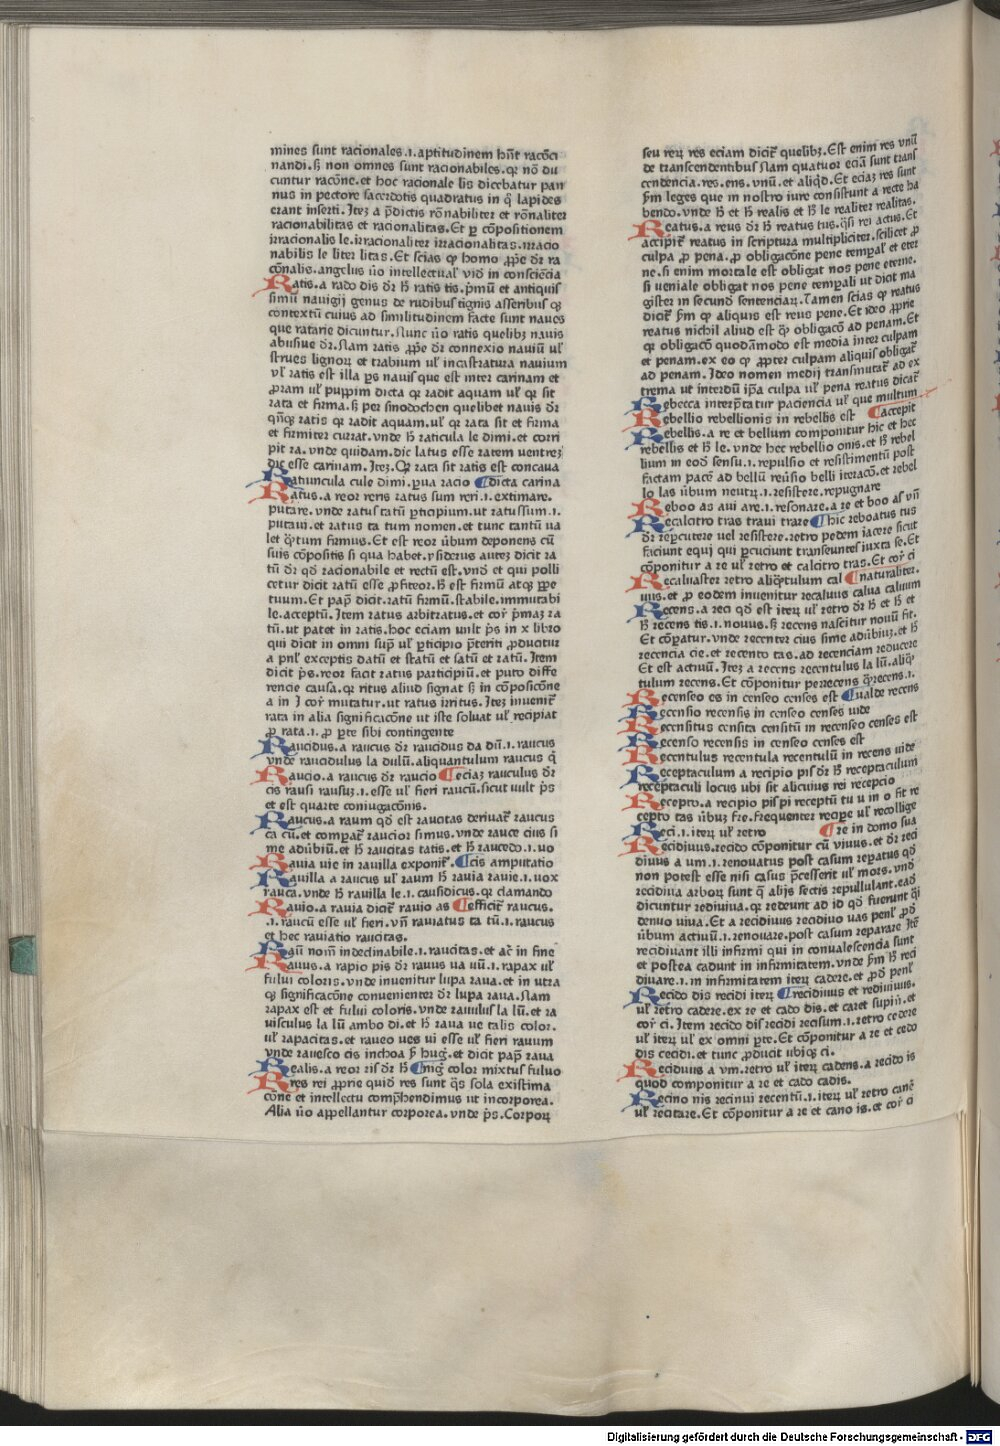 mines sunt racionales.ı. aptitudinem hn̄t racōci
nandi. ß non omnes sunt racionabiles. qr nō du
cuntur racōne. et hoc racionale lis dicebatur pan
nus in pectore sacerdotis quadratus in q̄ lapides
erant inserti. Itez a p̄dictis rōnabiliter et rōnaliter
racionabilitas et racionalitas. Et p cōpositionem
irracionalis le. irracionaliter irracionalitas. irracio
nabilis le liter litas. Et scias qp homo ꝓpe dr̄ ra
cōnalis. angelus ūo intellectual' vid in consciēcia
Ratis. a rado dis dr̄ h̄ ratis tis. p̄mū et antiquis
simū nauigij genus de rudibus tignis asseribus qz
contextū cuius ad similitudinem facte sunt naues
que ratarie dicuntur. Nunc ūo ratis quelibz nauis
abusiue dr̄. Nam ratis ꝓpe dr̄ connexio nauiū ul'
strues lignorz et trabium ul' incastratura nauium
vl' ratis est illa ps nauis que est inter carinam et
ꝓram ul' puppim dicta qr radit aquam ul' qr sit
rata et firma. ß per sinodochen quelibet nauis dr̄
qn̄qz ratis qr radit aquam. ul' qr rata sit et firma
et firmiter currat. vnde h̄ raticula le dimi. et corri
pit ra. vnde quidam. dic latus esse ratem uentrez
dic esse carinam. Itez. Qr rata sit ratis est concaua
Ratiuncula cule dimi. pua racio ¶ dicta carina
Ratus. a reor reris ratus sum reri .ı. extimare.
putare. vnde ratus ta tū pticipium. ut ratus sum .ı.
putaui. et ratus ta tum nomen. et tunc tantū ua
let q̄tum firmus. Et est reor ūbum deponens cū
suis cōpositis si qua habet. rsiderus autez dicit ra
tū dr̄ qd racionabile et rectū est. vnd et qui polli
cetur dicit ratū esse ꝓfiteor. h̄ est firmū atqz ppe
tuum. Et pap̄ dicit. ratū firmū. stabile. immutabi
le. acceptū. Item ratus arbitratus. et cor' p̄maz ra
tū. ut patet in ratis. hoc eciam uult p̄s in x libro
qui dicit in omni sup̄ ul' pticipio p̄teriti ꝓducitur
a pnl' exceptis datū et statū et satū et ratū. Item
dicit p̄s. reor facit ratus participiū. et puto diffe
rencie causa. qr ritus aliud signat ß in cōposicōne
a in I cor' mutatur. ut ratus irritus. Itez inuenit'
rata in alia significacōne ut iste soluat ul' recipiat
ꝓ rata .ı. ꝓ pte sibi contingente
Raucidus. a raucus dr̄ raucidus da dū .ı. raucus
vnde raucidulus la dulū. aliquantulum raucus q̄
Raucio. a raucus dr̄ raucio ¶ eciaz rauculus dr̄
cis rausi rausuz .ı. esse ul' fieri raucū. sicut uult p̄s
et est quarte coniugacōnis.
Raucus. a raum qd est raucitas deriuat' raucus
ca cū. et compat' raucior simus. vnde rauce cius si
me aduībiū. et h̄ raucitas tatis. et h̄ raucedo .ı. uo
Rauia uie in rauilla exponit'. ¶ cis amputatio
Rauilla a raucus ul' raum h̄ rauia rauie .ı. uox
rauca. vnde h̄ rauilla le .ı. causidicus. qr clamando
Rauio. a rauia dicit' rauio as ¶ efficit' raucus.
.ı. raucū esse ul' fieri. vn̄ rauiatus ta tū .ı. raucus
et hec rauiatio raucitas.
Raū nom̄ indeclinabile .ı. raucitas. et ac̄ in fine
Rauus. a rapio pis dr̄ rauus ua uū .ı. rapax ul'
fului coloris. vnde inuenitur lupa raua. et in utra
qz significacōne conuenienter dr̄ lupa raua. Nam
rapax est et fului coloris. vnde rauulus la lū. et ra
uisculus la lū ambo di. et h̄ raua ue talis color.
ul' rapacitas. et raueo ues ui esse ul' fieri rauum
vnde rauesco cis inchoa p̄ hug'. et dicit pap̄ raua
Realis. a reor ris dr̄ h̄ ¶ nig' color mixtus fuluo
Res rei ꝓprie quid res sunt q̄s sola existima
cōne et intellectu comp̄hendimus ut incorporea.
Alia ūo appellantur corporea. vnde p̄s. Corporz
seu rerz res eciam dicit' quelibz. Est enim res vnū
de transcendentibus Nam quatuor eciā sunt trans
cendencia. res. ens. vnū. et aliqd. Et eciaz res sunt
p̄m leges que in nostro iure consistunt a recte ha
bendo. vnde h̄ et h̄ realis et h̄ le realiter realitas.
Reatus. a reus dr̄ h̄ reatus tus. q̄si rei actus. Et
accipit' reatus in scriptura multipliciter. scilicet ꝓ
culpa ꝓ pena. ꝓ obligacōne pene tempal' et eter
ne. si enim mortale est obligat nos pene eterne.
si ueniale obligat nos pene tempali ut dict ma
gister in secund sentenciarz. Tamen scias qp reatus
dicit' p̄m qp aliquis est reus pene. Et ideo ꝓprie
reatus nichil aliud est q̄ obligacō ad penam. Et
qr obligacō quodāmodo est media inter culpam
et penam. ex eo qp ꝓpter culpam aliquis obligat'
ad penam. Ideo nomen medij transmutat' ad ex
trema ut interdū ip̄a culpa ul' pena reatus dicat'
Rebecca interp̄tatur paciencia ul' que multum
Rebellio rebellionis in rebellis est ¶ accepit
Rebellis. a re et bellum componitur hic et hec
rebellis et h̄ le. vnde hec rebellio onis. et h̄ rebel
lium in eod sensu .ı. repulsio et resistimentū post
factam pacē ad bellū reūsio belli iteracō. et rebel
lo las ūbum neutrz .ı. resistere. repugnare
Reboo as aui are .ı. resonare. a re et boo as vn̄
Recalcitro tras traui trare ¶ hic reboatus tus
dr̄ repcutere uel resistere. retro pedem iacere sicut
faciunt equj qui pcuciunt transeuntes iuxta se. Et
cōponitur a re ul' retro et calcitro tras. Et cor' ci
Recaluaster retro aliq̄tulum cal ¶ naturaliter.
uus. et ꝓ eodem inuenitur recaluus calua caluum
Recens. a reci qd est iterz ul' retro dr̄ h̄ et h̄ et
h̄ recens tis .ı. nouus. ß recens nascitur nouū fit.
Et cōpatur. vnde recenter cius sime adūbiuz. et h̄
recencia cie. et recento tas. ad recenciam reducere
Et est actiuū. Itez a recens recentulus la lū. aliq̄
tulum recens. Et cōponitur perrecens q̄ recens .ı.
Recenseo es in censeo censes est ¶ ualde recens
Recensio recensis in censeo censes uide
Recensitus censita censitū in recenseo censes est
Recenso recensis in censeo censes est
Recentulus recentula recentulū in recens uide
Receptaculum a recipio pis dr̄ h̄ receptaculum
receptaculi locus ubi sit alicuius rei recepcio
Recepto. a recipio pis pi receptū tu u in o fit re
cepto tas ūbuz fre. frequenter recipe ul' recollige
Reci .ı. iterz ul' retro ¶ re in domo sua
Recidiuus. recido cōponitur cū viuus. et dr̄ reci
diuus a um .ı. renouatus post casum repatus qd
non potest esse nisi casus p̄cesserit ul' mors. vnd
recidiua arborz sunt q̄ alijs sectis repullulant. ead
dicuntur rediuiua. qr redeunt ad id qd fuerunt q̄si
denuo uiua. Et a recidiuus recidiuo uas penl' ꝓd
ūbum actiuū .ı. renouare. post casum reparare Itē
recidiuant illi infirmi qui in conualescencia sunt
et postea cadunt in infirmitatem. vnde p̄m h̄ reci
diuare .ı. in infirmitatem iterz cadere. et ꝓd penl'
Recido dis recidi iterz ¶ recidiuus et rediuiuus.
ul' retro cadere. ex re et cado dis. et caret supin̄. et
cor' ci. Item recido dis recidi recisum .ı. retro cedere
ul' iterz ul' ex omni pte. Et cōponitur a re et cedo
dis cecidi. et tunc ꝓducit ubiqz ci.
Recidiuus a vm. retro ul' iterz cadens. a recido is
quod componitur a re et cado cadis.
Recino nis recinui recentū .ı. iterz ul' retro canē
ul' recitare. Et cōponitur a re et cano is. et cor' ci
Digitalisierung gefördert durch die Deutsche Forschungsgemeinschaft - DFG